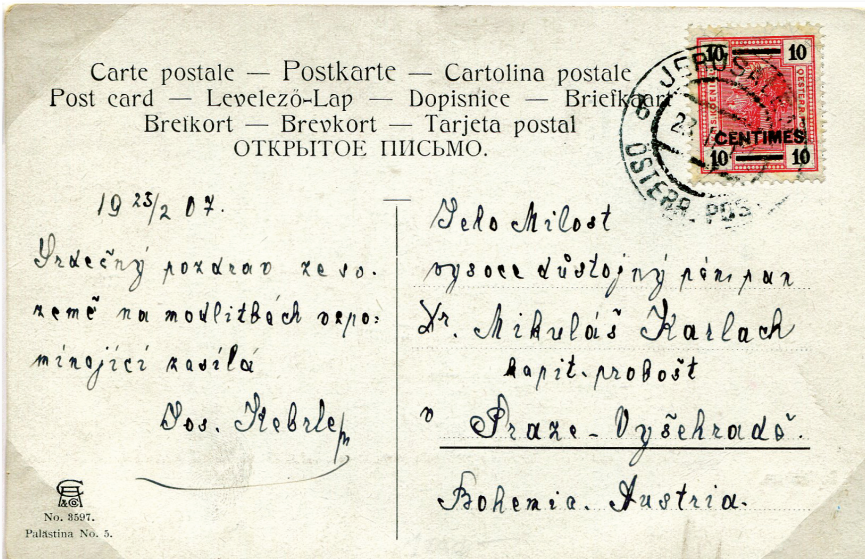 Carte postale — Postkarte — Cartolina postale
Post card — Levelező-Lap — Dopisnice — Briefkaart
Brefkort — Brevkort — Tarjeta postal
ОТКРЫТОЕ ПИСЬМО.
10 10
CENTIMES
10 10
JERUSALEM
ÖSTERR. POST
19 25/2 07.
Srdečný pozdrav ze sv.
země na modlitbách vzpo:
mínající zasílá
Jos. Kebrle
Jeho Milost
vysoce důstojný pán pan
Dr. Mikuláš Karlach
kapit. probošt
v Praze - Vyšehradě.
Bohemia. Austria.
No. 3597.
Palästina No. 5.